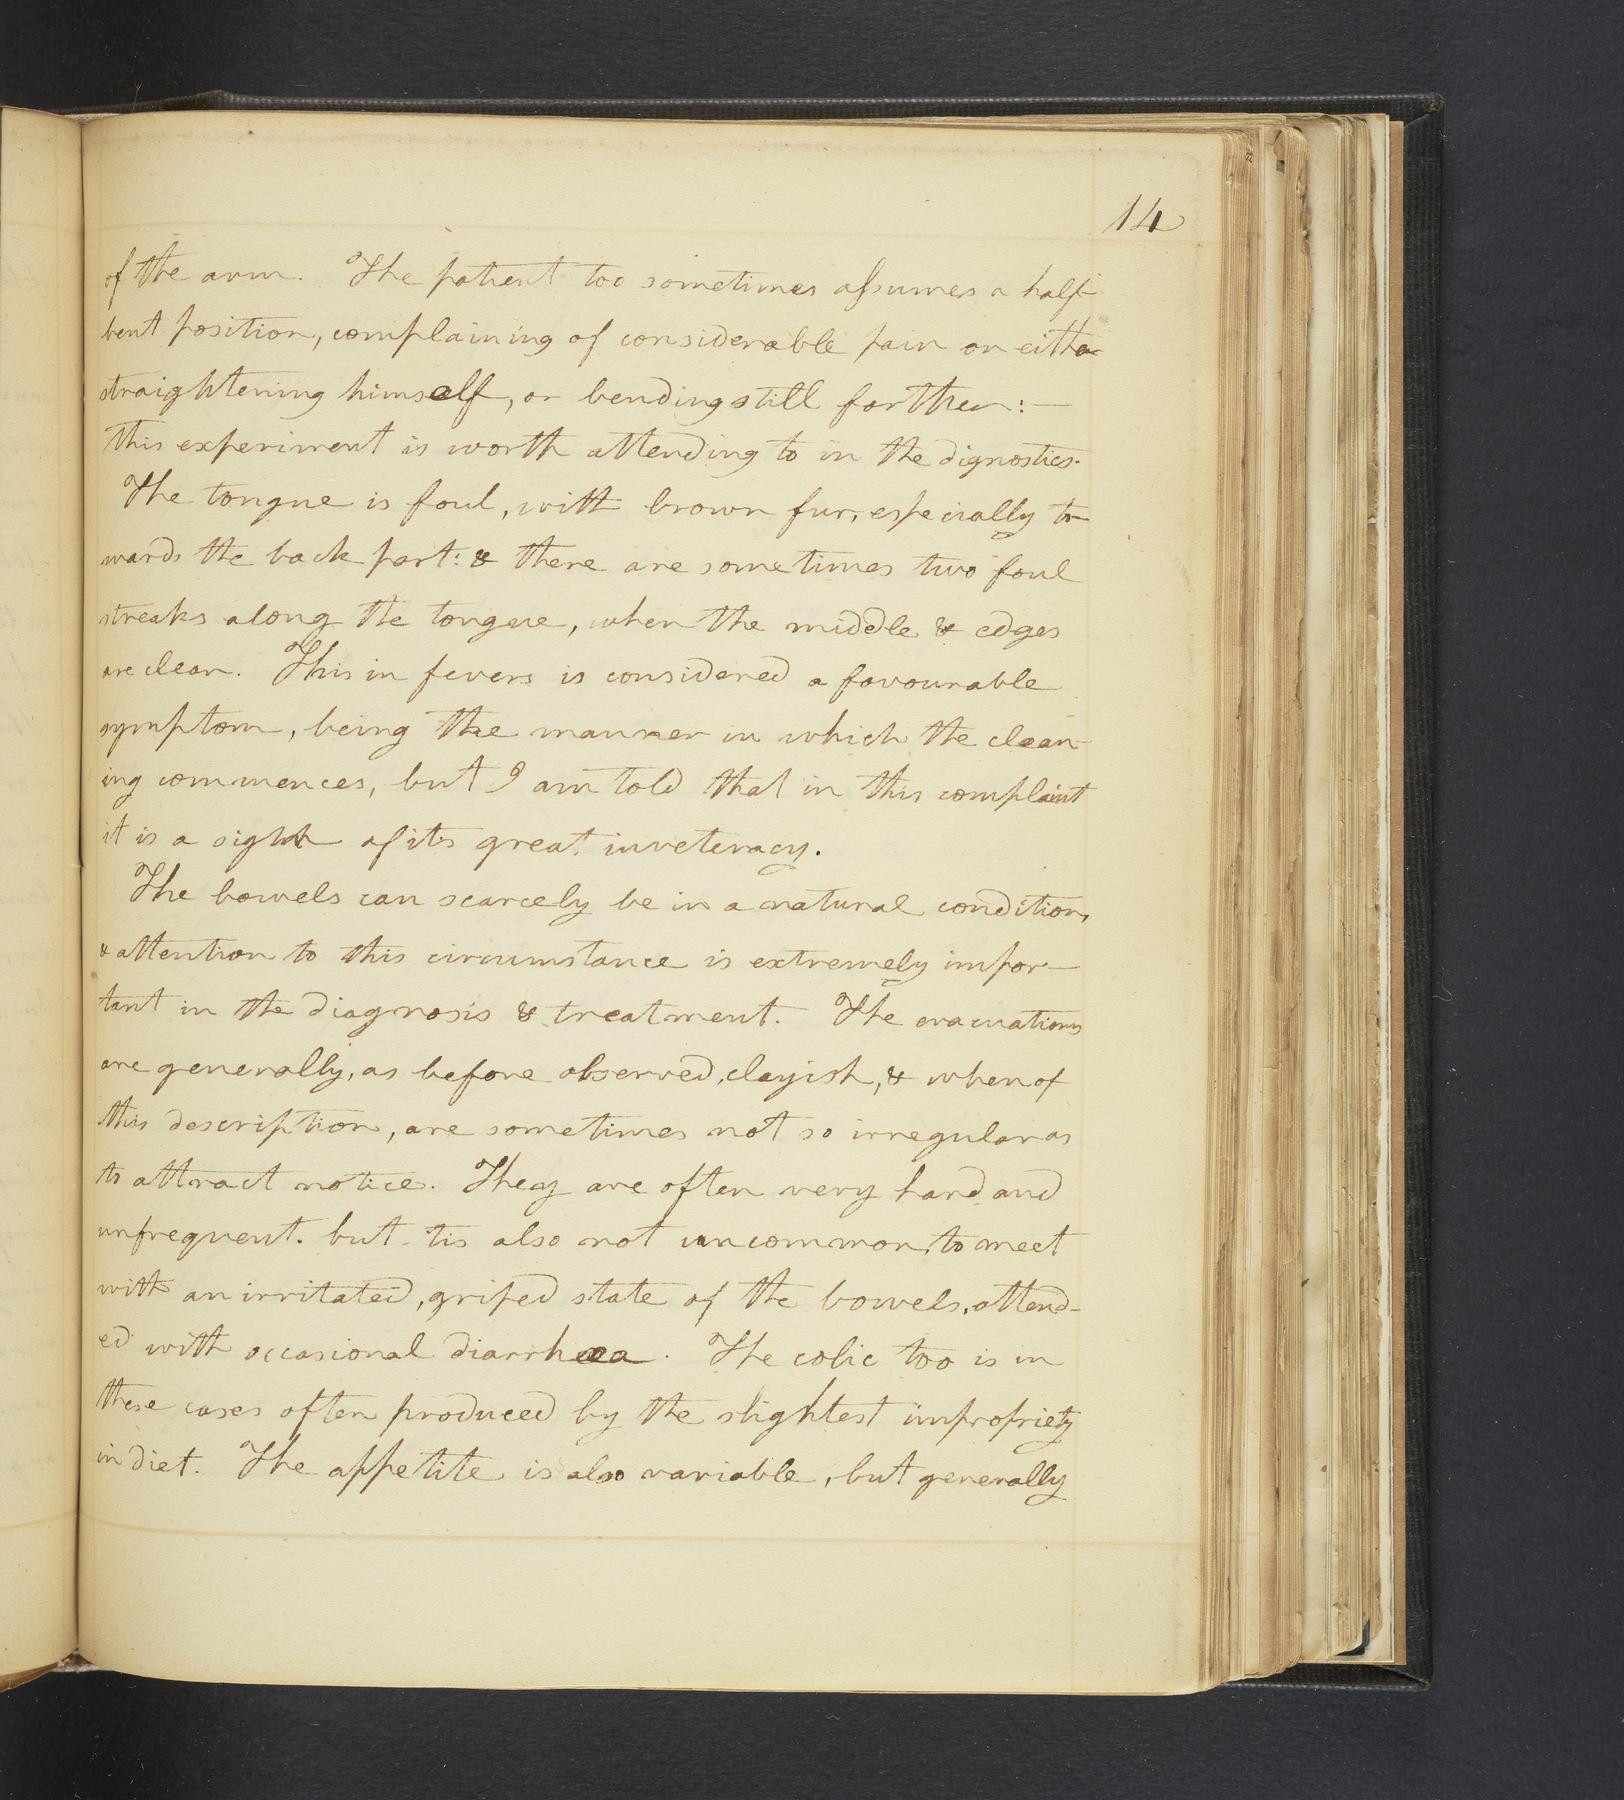 14
of the arm. The patient too sometimes assumes a half
bent position, complaining of considerable pain on either
straightening himself, or bending still farther:—
This experiment is worth attending to in the dignostics.
The tongue is foul, with brown fur, especially to-
wards the back part: & there are sometimes two foul
streaks along the tongue, when the middle & edges
are clean. This in fevers is considered a favourable
symptom, being the manner in which the clean-
ing commences, but I am told that in this complaint
it is a sight of its great inveteracy.
The bowels can scarcely be in a natural condition,
& attention to this circumstance is extremely impor-
tant in the diagnosis & treatment. The evacuations
are generally, as before observed, clayish, & when of
this description, are sometimes not so irregular as
to attract notice. They are often very hard and
unfrequent. but tis also not uncommon, to meet
with an irritated, griped state of the bowels, attend-
ed with occasional diarrhœa. The colic too is in
these cases often produced by the slightest impropriety
in diet. The appetite is also variable, but generally